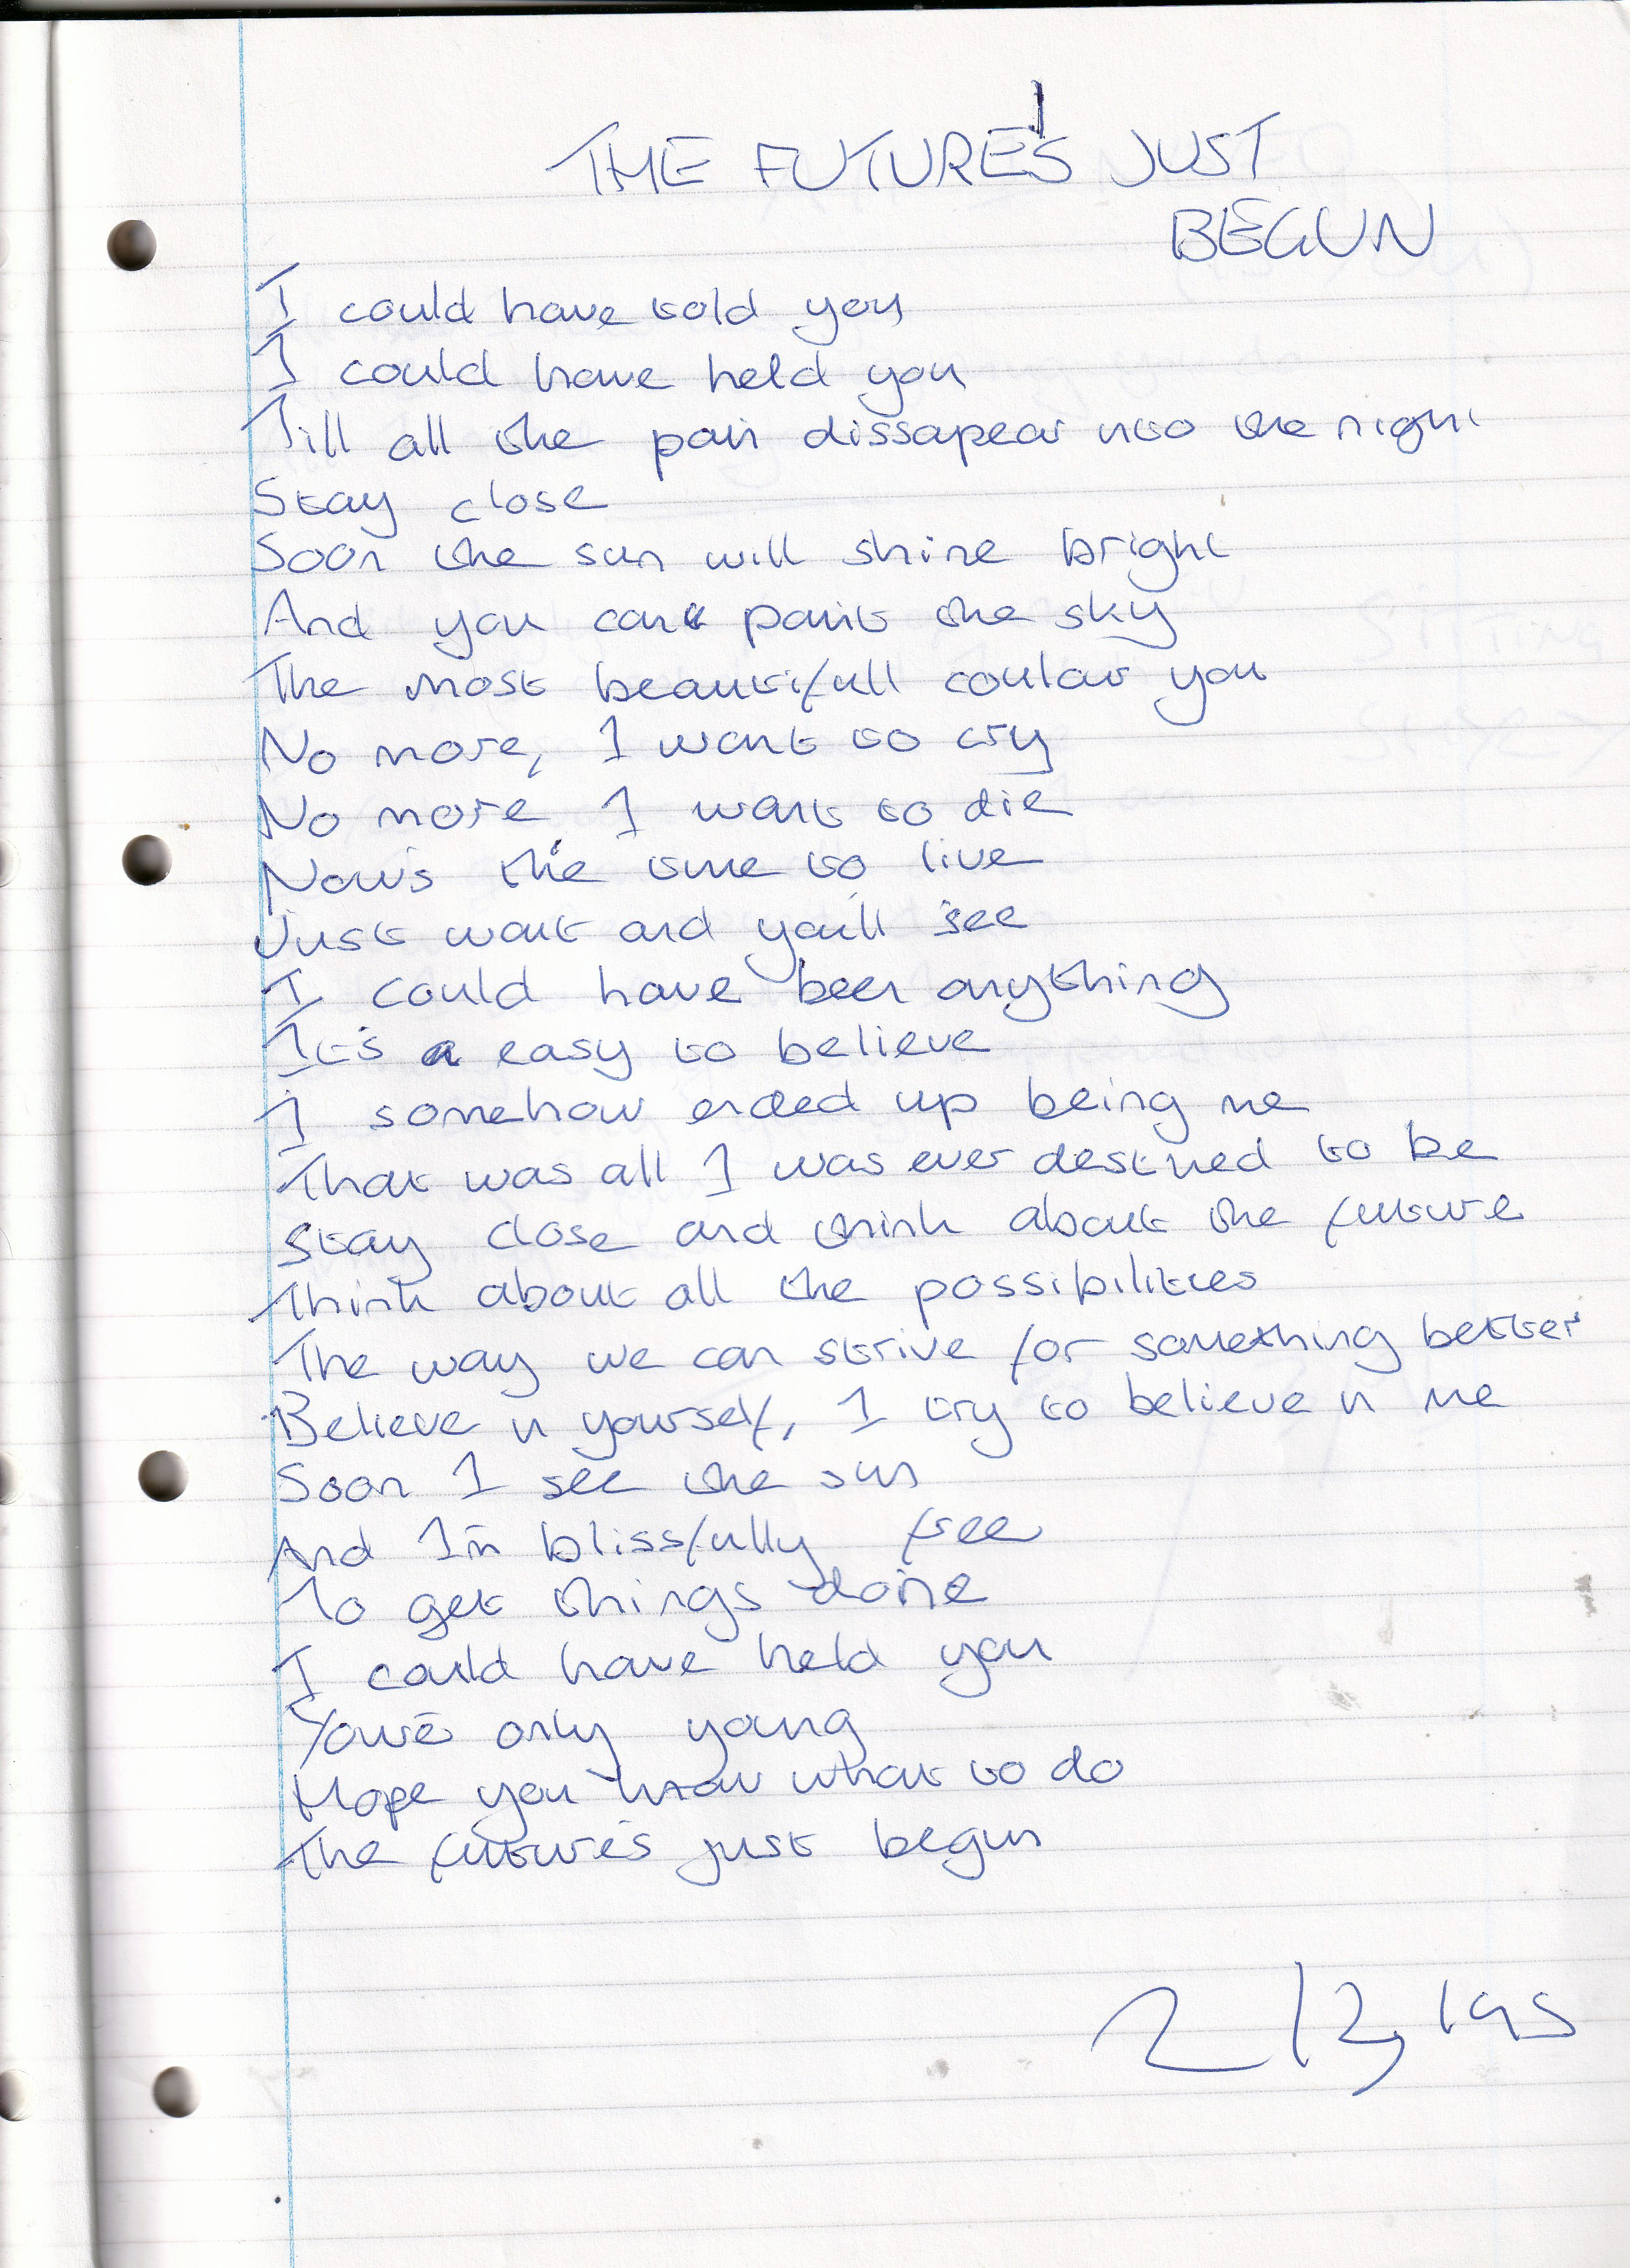 THE FUTURE'S JUST
BEGUN
I could have told you
I could have held you
Till all the pain dissapear into the night
Stay close
Soon the sun will shine bright
And you can paint the sky
The most beautifull coulour you
No more, I want to cry
No more, I want to die
Now's the time to live
Just wait and you'll see
I could have been anything
It's a easy to believe
I somehow ended up being me
That was all I was ever destined to be
Stay close and think about the future
Think about all the possibilities
The way we can strive for something better
Believe in yourself, I try to believe in me
Soon I see the sun
And I'm blissfully free
To get things done
I could have held you
You're only young
Hope you know what to do
The future's just begun